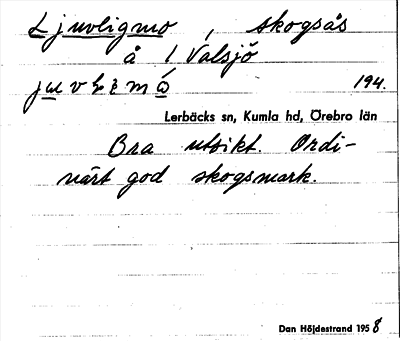 Ljuvligmo, skogsås
å 1 Valsjö
194.
Lerbäcks sn, Kumla hd, Örebro län
Bra utsikt. Ordi-
närt god skogsmark.
Dan Höjdestrand 1958